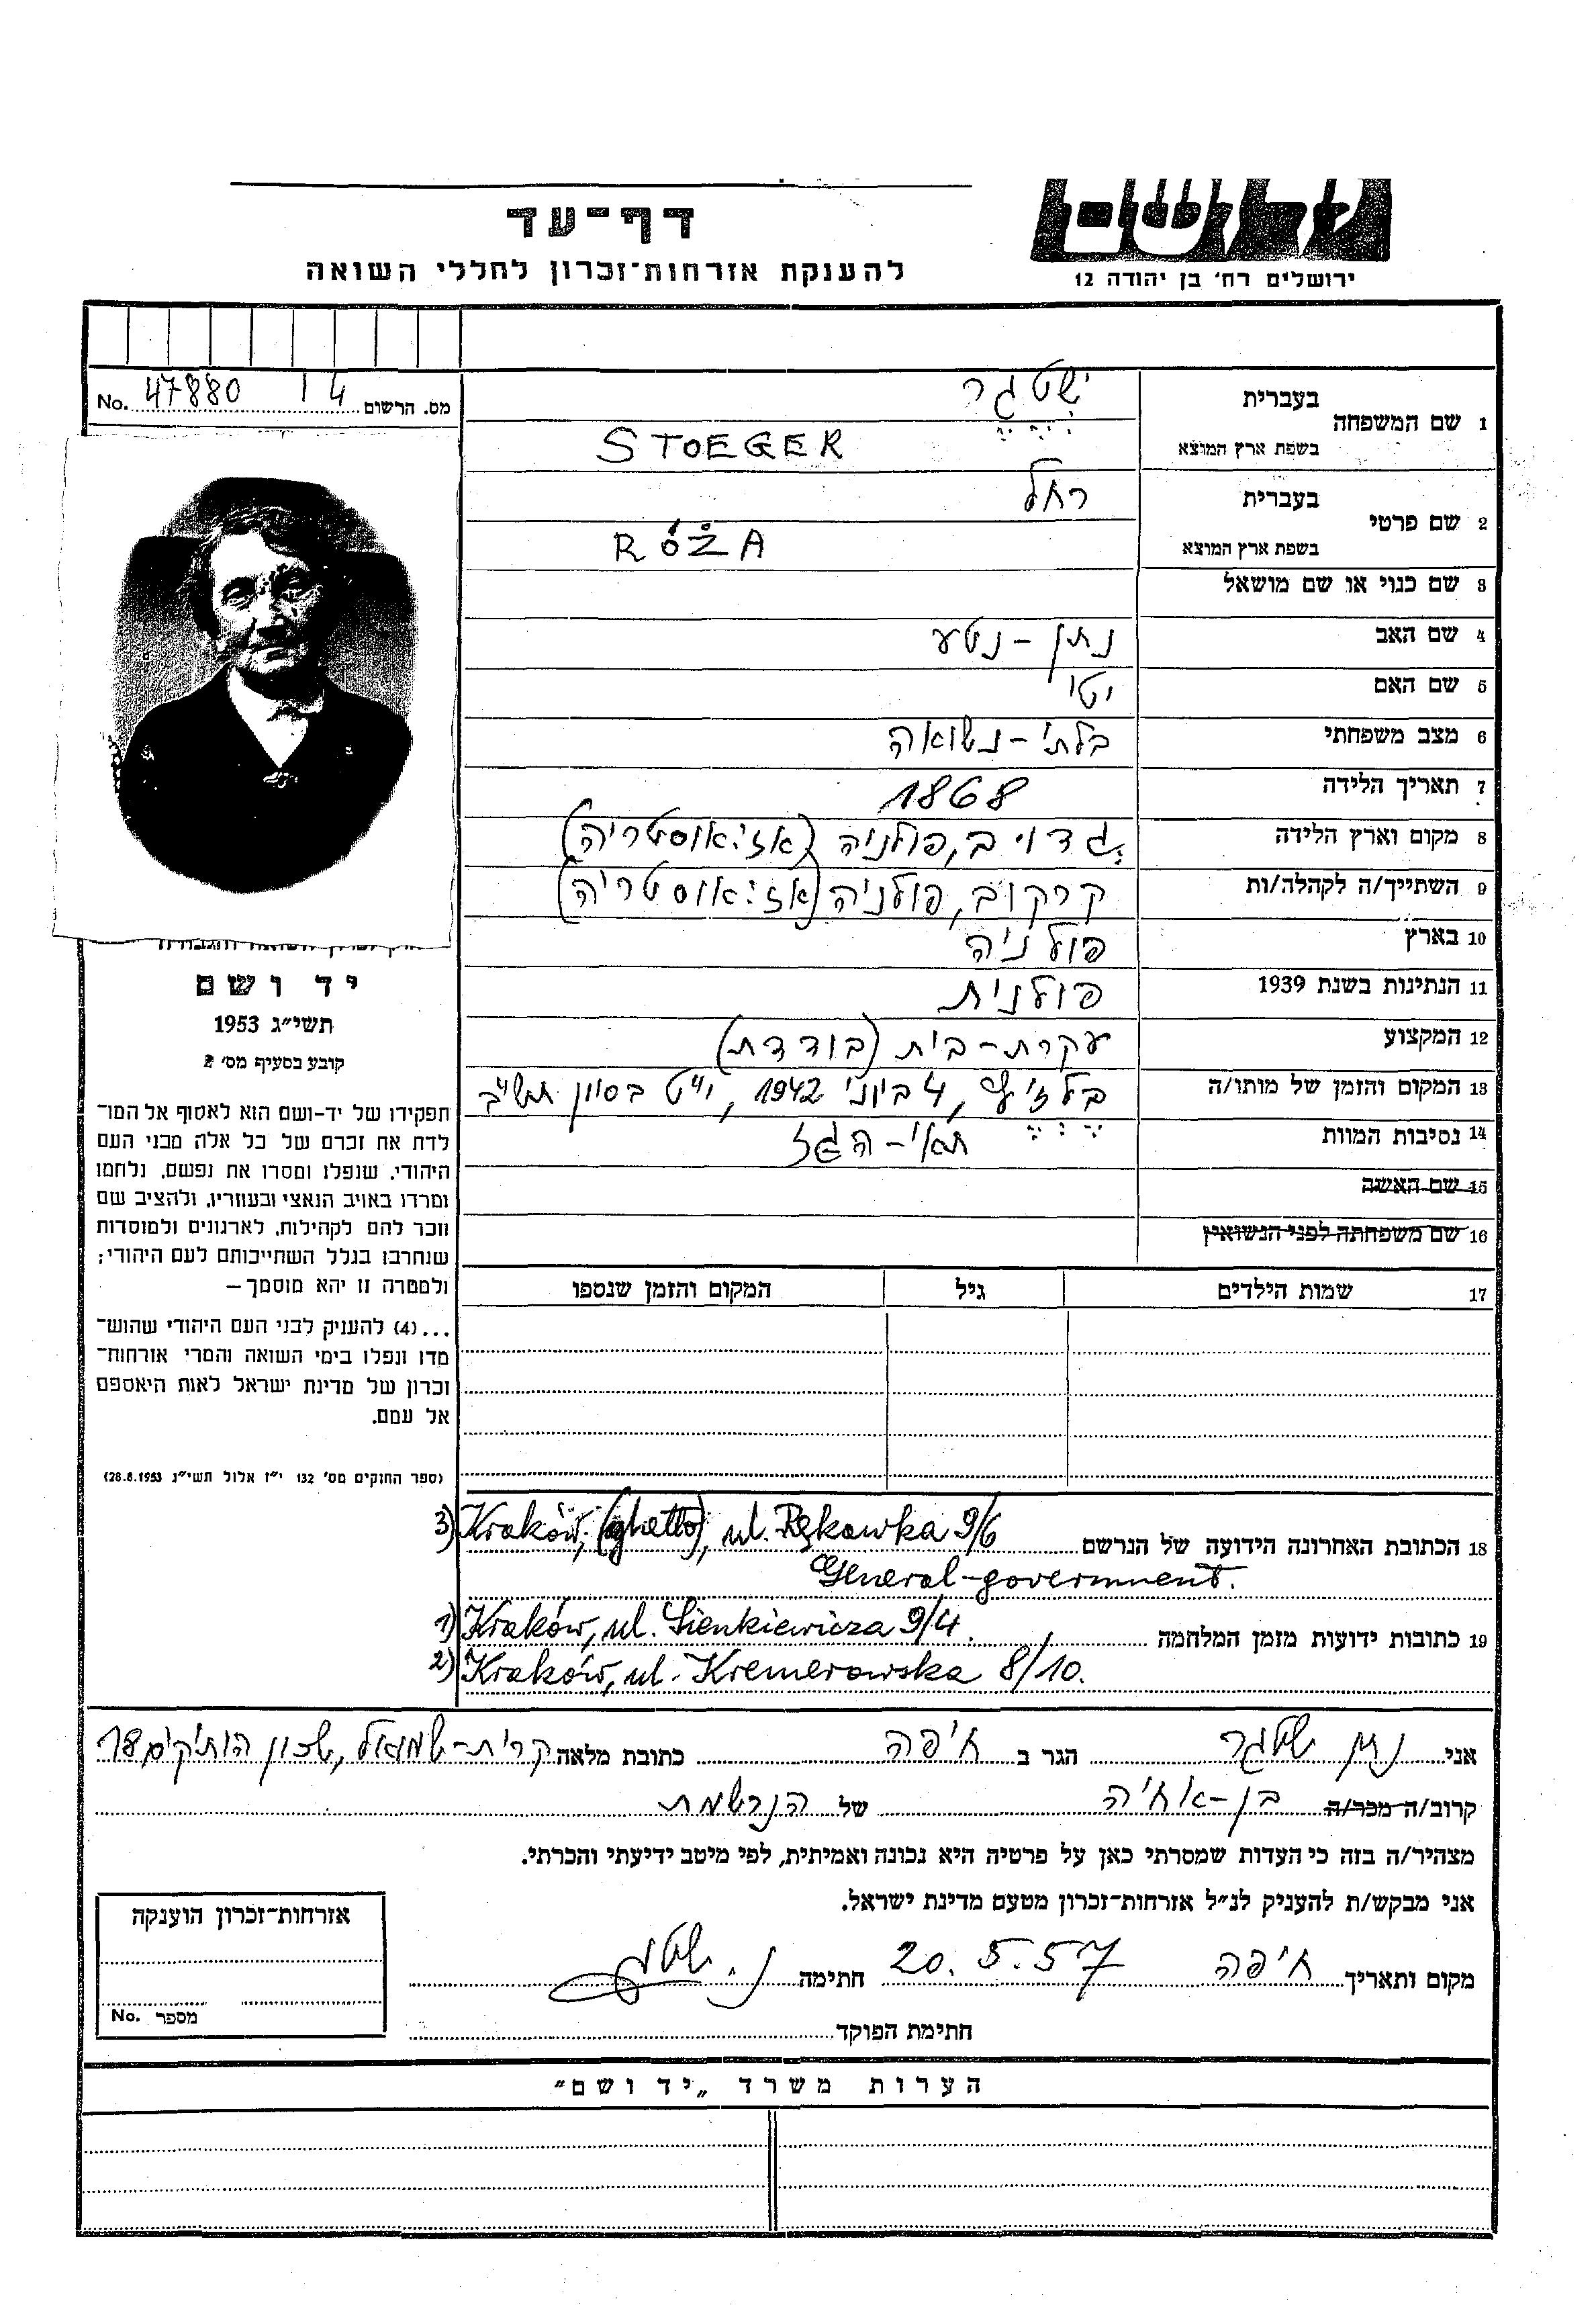 דף-עד
להענקת אזרחות-זכרון לחללי השואה
ושם
ירושלים רח' בן יהודה 12
No. 47880 14 מס. הרשום
1 שם המשפחה
בעברית שטגר
בשפת ארץ המוצא STOEGER
2 שם פרטי
בעברית רחל
בשפת ארץ המוצא RÓŻA
3 שם כנוי או שם מושאל
4 שם האב נתן-נטע
5 שם האם יטי
6 מצב משפחתי בלתי-נשואה
7 תאריך הלידה 1868
8 מקום וארץ הלידה גדוב, פולניה (אז: אוסטריה)
9 השתייך/ה לקהלה/ות קרקוב, פולניה (אז: אוסטריה)
10 בארץ פולניה
11 הנתינות בשנת 1939 פולנית
12 המקצוע עקרת-בית (בודדת)
13 המקום והזמן של מותו/ה בלז'ץ, 4 ביוני 1942, י"ט בסיון תש"ב
14 נסיבות המוות תאי-הגז
15 שם האשה
16 שם משפחתה לפני הנשואין
17 שמות הילדים גיל המקום והזמן שנספו
18 הכתובת האחרונה הידועה של הנרשם 3) Kraków, (ghetto), ul. Rękawka 9/6
General-government.
19 כתובות ידועות מזמן המלחמה 1) Kraków, ul. Sienkiewicza 9/4.
2) Kraków, ul. Kremerowska 8/10.
יד ושם
תשי"ג 1953
קובע בסעיף מס' 2
תפקידו של יד-ושם הוא לאסוף אל המו-
לדת את זכרם של כל אלה מבני העם
היהודי, שנפלו ומסרו את נפשם, נלחמו
ומרדו באויב הנאצי ובעוזריו, ולהציב שם
וזכר להם לקהילות, לארגונים ולמוסדות
שנחרבו בגלל השתייכותם לעם היהודי;
ולמטרה זו יהא מוסמך –
...(4) להעניק לבני העם היהודי שהוש-
מדו ונפלו בימי השואה והמרי אזרחות-
זכרון של מדינת ישראל לאות היאספם
אל עמם.
(ספר החוקים מס' 132 י"ז אלול תשי"ג 28.8.1953)
אני נתן שטגר הגר ב חיפה כתובת מלאה קרית-שמואל, שכון הותיקים 18
קרוב/ה מכר/ה בן-אחיה של הנרשמת
מצהיר/ה בזה כי העדות שמסרתי כאן על פרטיה היא נכונה ואמיתית, לפי מיטב ידיעתי והכרתי.
אני מבקש/ת להעניק לנ"ל אזרחות-זכרון מטעם מדינת ישראל.
מקום ותאריך חיפה 20.5.57 חתימה נ.
חתימת הפוקד
אזרחות-זכרון הוענקה
No. מספר
הערות משרד „יד ושם"